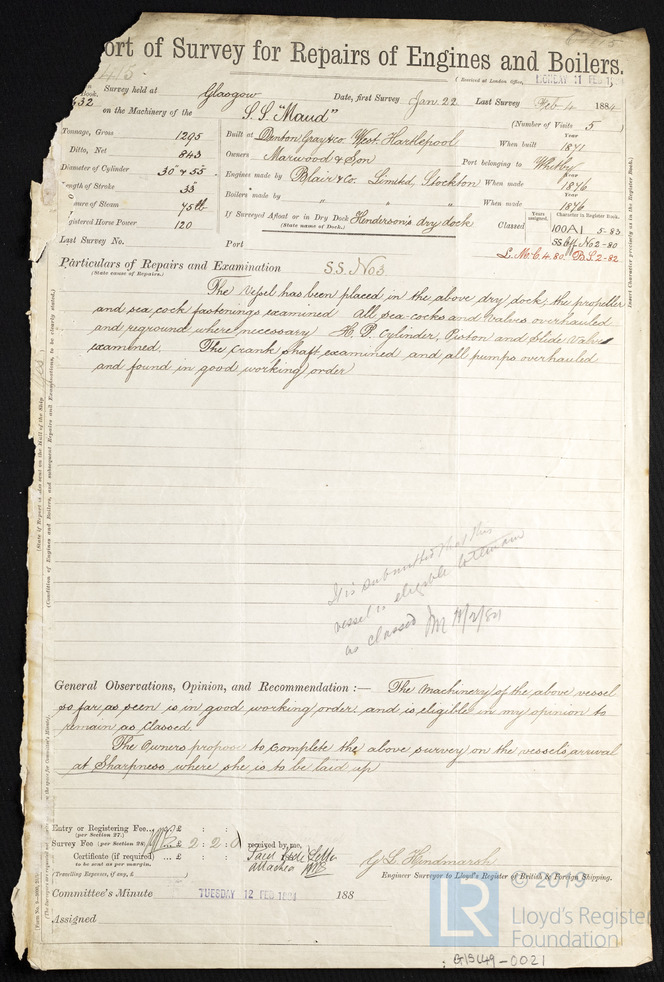 ort of Survey for Repairs of Engines and Boilers.
415
(Received at London Office, MONDAY 11 FEB 18
432
Survey held at Glasgow Date, first Survey Jan. 22 Last Survey Feb 4 1884
on the Machinery of the S.S. "Maud" (Number of Visits 5 )
Tonnage, Gross 1295
Ditto, Net 843
Diameter of Cylinder 30" & 55
ength of Stroke 33"
ure of Steam 75 lb
gistered Horse Power 120
Built at Denton Gray & Co. West Hartlepool When built Year 1871
Owners Marwood & Son Port belonging to Whitby
Engines made by Blair & Co. Limited, Stockton When made Year 1876
Boilers made by " " " When made Year 1876
If Surveyed Afloat or in Dry Dock Henderson's dry dock
(State name of Dock.)
Classed
Years assigned. Character in Register Book.
100A1 5-83
SS No 2-80
L.M.C. 4.80. B.S. 2-82
Insert Character precisely as in the Register Book.
Last Survey No. Port
Particulars of Repairs and Examination S.S. No 3
(State cause of Repairs.)
The Vessel has been placed in the above dry dock, the propeller
and sea cock fastenings examined All sea-cocks and valves overhauled
and reground where necessary H. P. Cylinder, Piston and Slide Valve
examined. The Crank shaft examined and all pumps overhauled
and found in good working order
(State if Report is also sent on the Hull of the Ship
(Condition of Engines and Boilers, and subsequent Repairs and Examinations, to be clearly stated.)
It is submitted that this
vessel is eligible to remain
as classed 11/2/84
General Observations, Opinion, and Recommendation :— The Machinery of the above vessel
so far as seen is in good working order and is eligible in my opinion to
remain as Classed.
The Owners propose to complete the above survey on the vessel's arrival
at Sharpness where she is to be laid up
Entry or Registering Fee... £ : :
(per Section 27.)
Survey Fee (per Section 28) £ 2 : 2 : 0 received by me,
Certificate (if required) ... £ : :
to be sent as per margin.
(Travelling Expenses, if any, £ )
attached
G L Hindmarsh
Engineer Surveyor to Lloyd's Register of British & Foreign Shipping.
Committee's Minute TUESDAY 12 FEB 1884 188
Assigned
© 2019
LR
Lloyd's Register
Foundation
GlSL49-0021